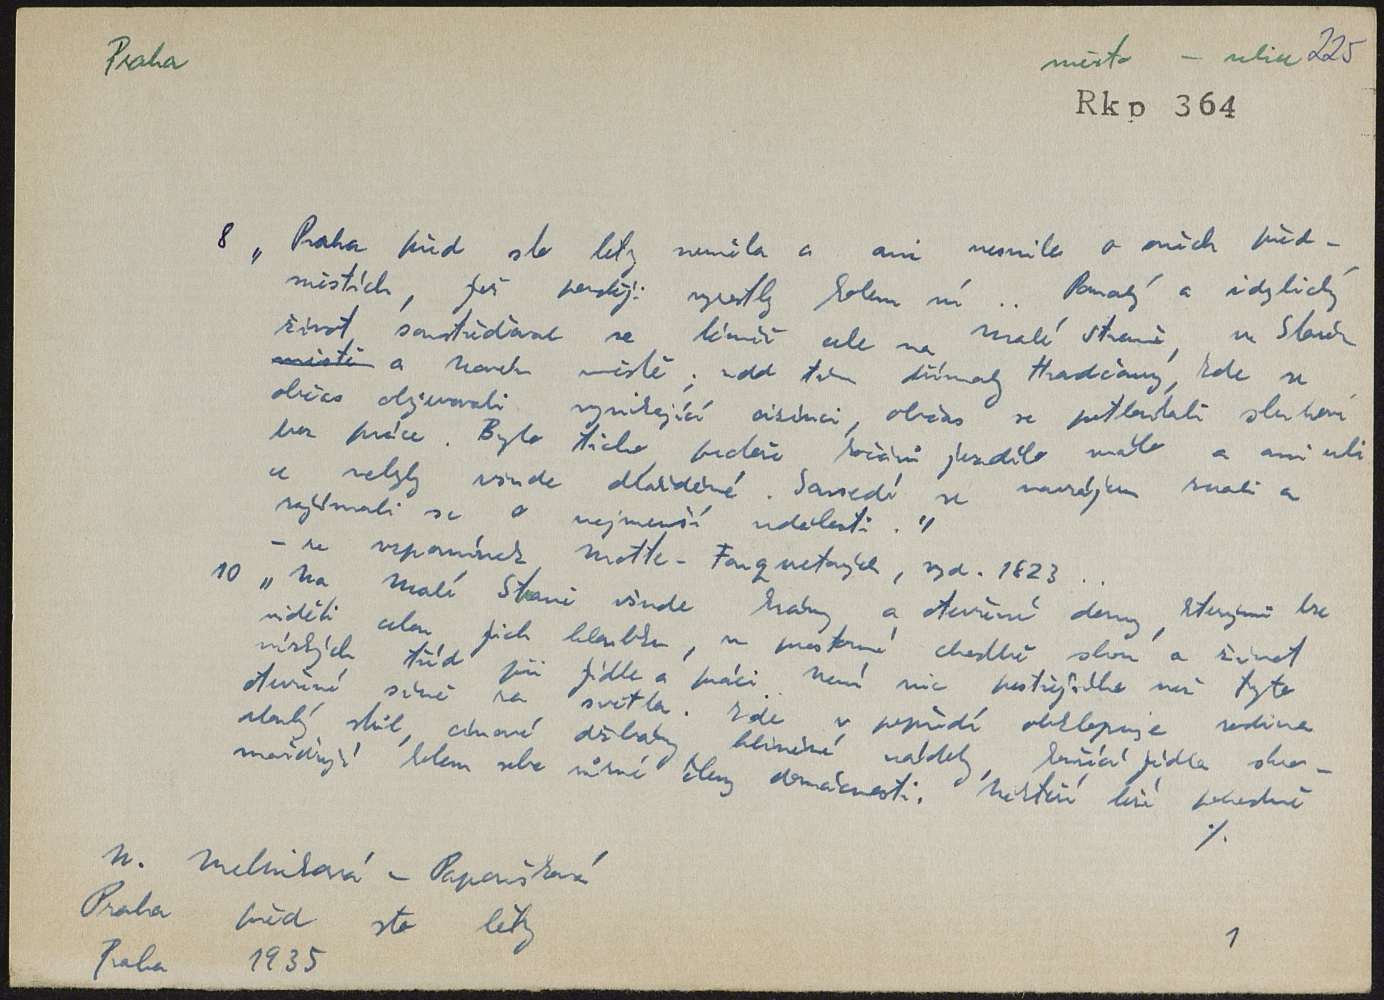 Praha město - ulice 225
Rkp 364
8 „Praha před sto lety neměla a ani nesnila o oněch před-
městích, jež později vyrostly kolem ní .. Pomalý a idylický
život soustřeďoval se téměř cele na Malé Straně, ve Starém
městě a Novém městě; nad tím dřímaly Hradčany, kde se
občas objevovali vynikající cizinci, občas se potloukali sluhové
bez práce. Bylo ticho protože kočárů jezdilo málo a ani uli
ce nebyly všude dlážděné. Sousedé se navzájem znali a
zajímali se o nejmenší události."
- ze vzpomínek Motte-Fouquetových, vyd. 1823 ..
10 „Na Malé Straně všude krámy a otevřené domy, kterými lze
viděti celou jich hloubku, v prostorné chodbě shon a život
nízkých tříd při jídle a práci. Není nic pestřejšího než tyto
otevřené síně za světla. Zde v popředí obklopuje rodina
dlouhý stůl, cínové džbány, hliněné nádoby, kouřící jídla shro-
mažďují kolem sebe různé členy domácnosti. Někteří leží pohodlně
./.
N. Melniková - Papoušková
Praha před sto lety
Praha 1935
1